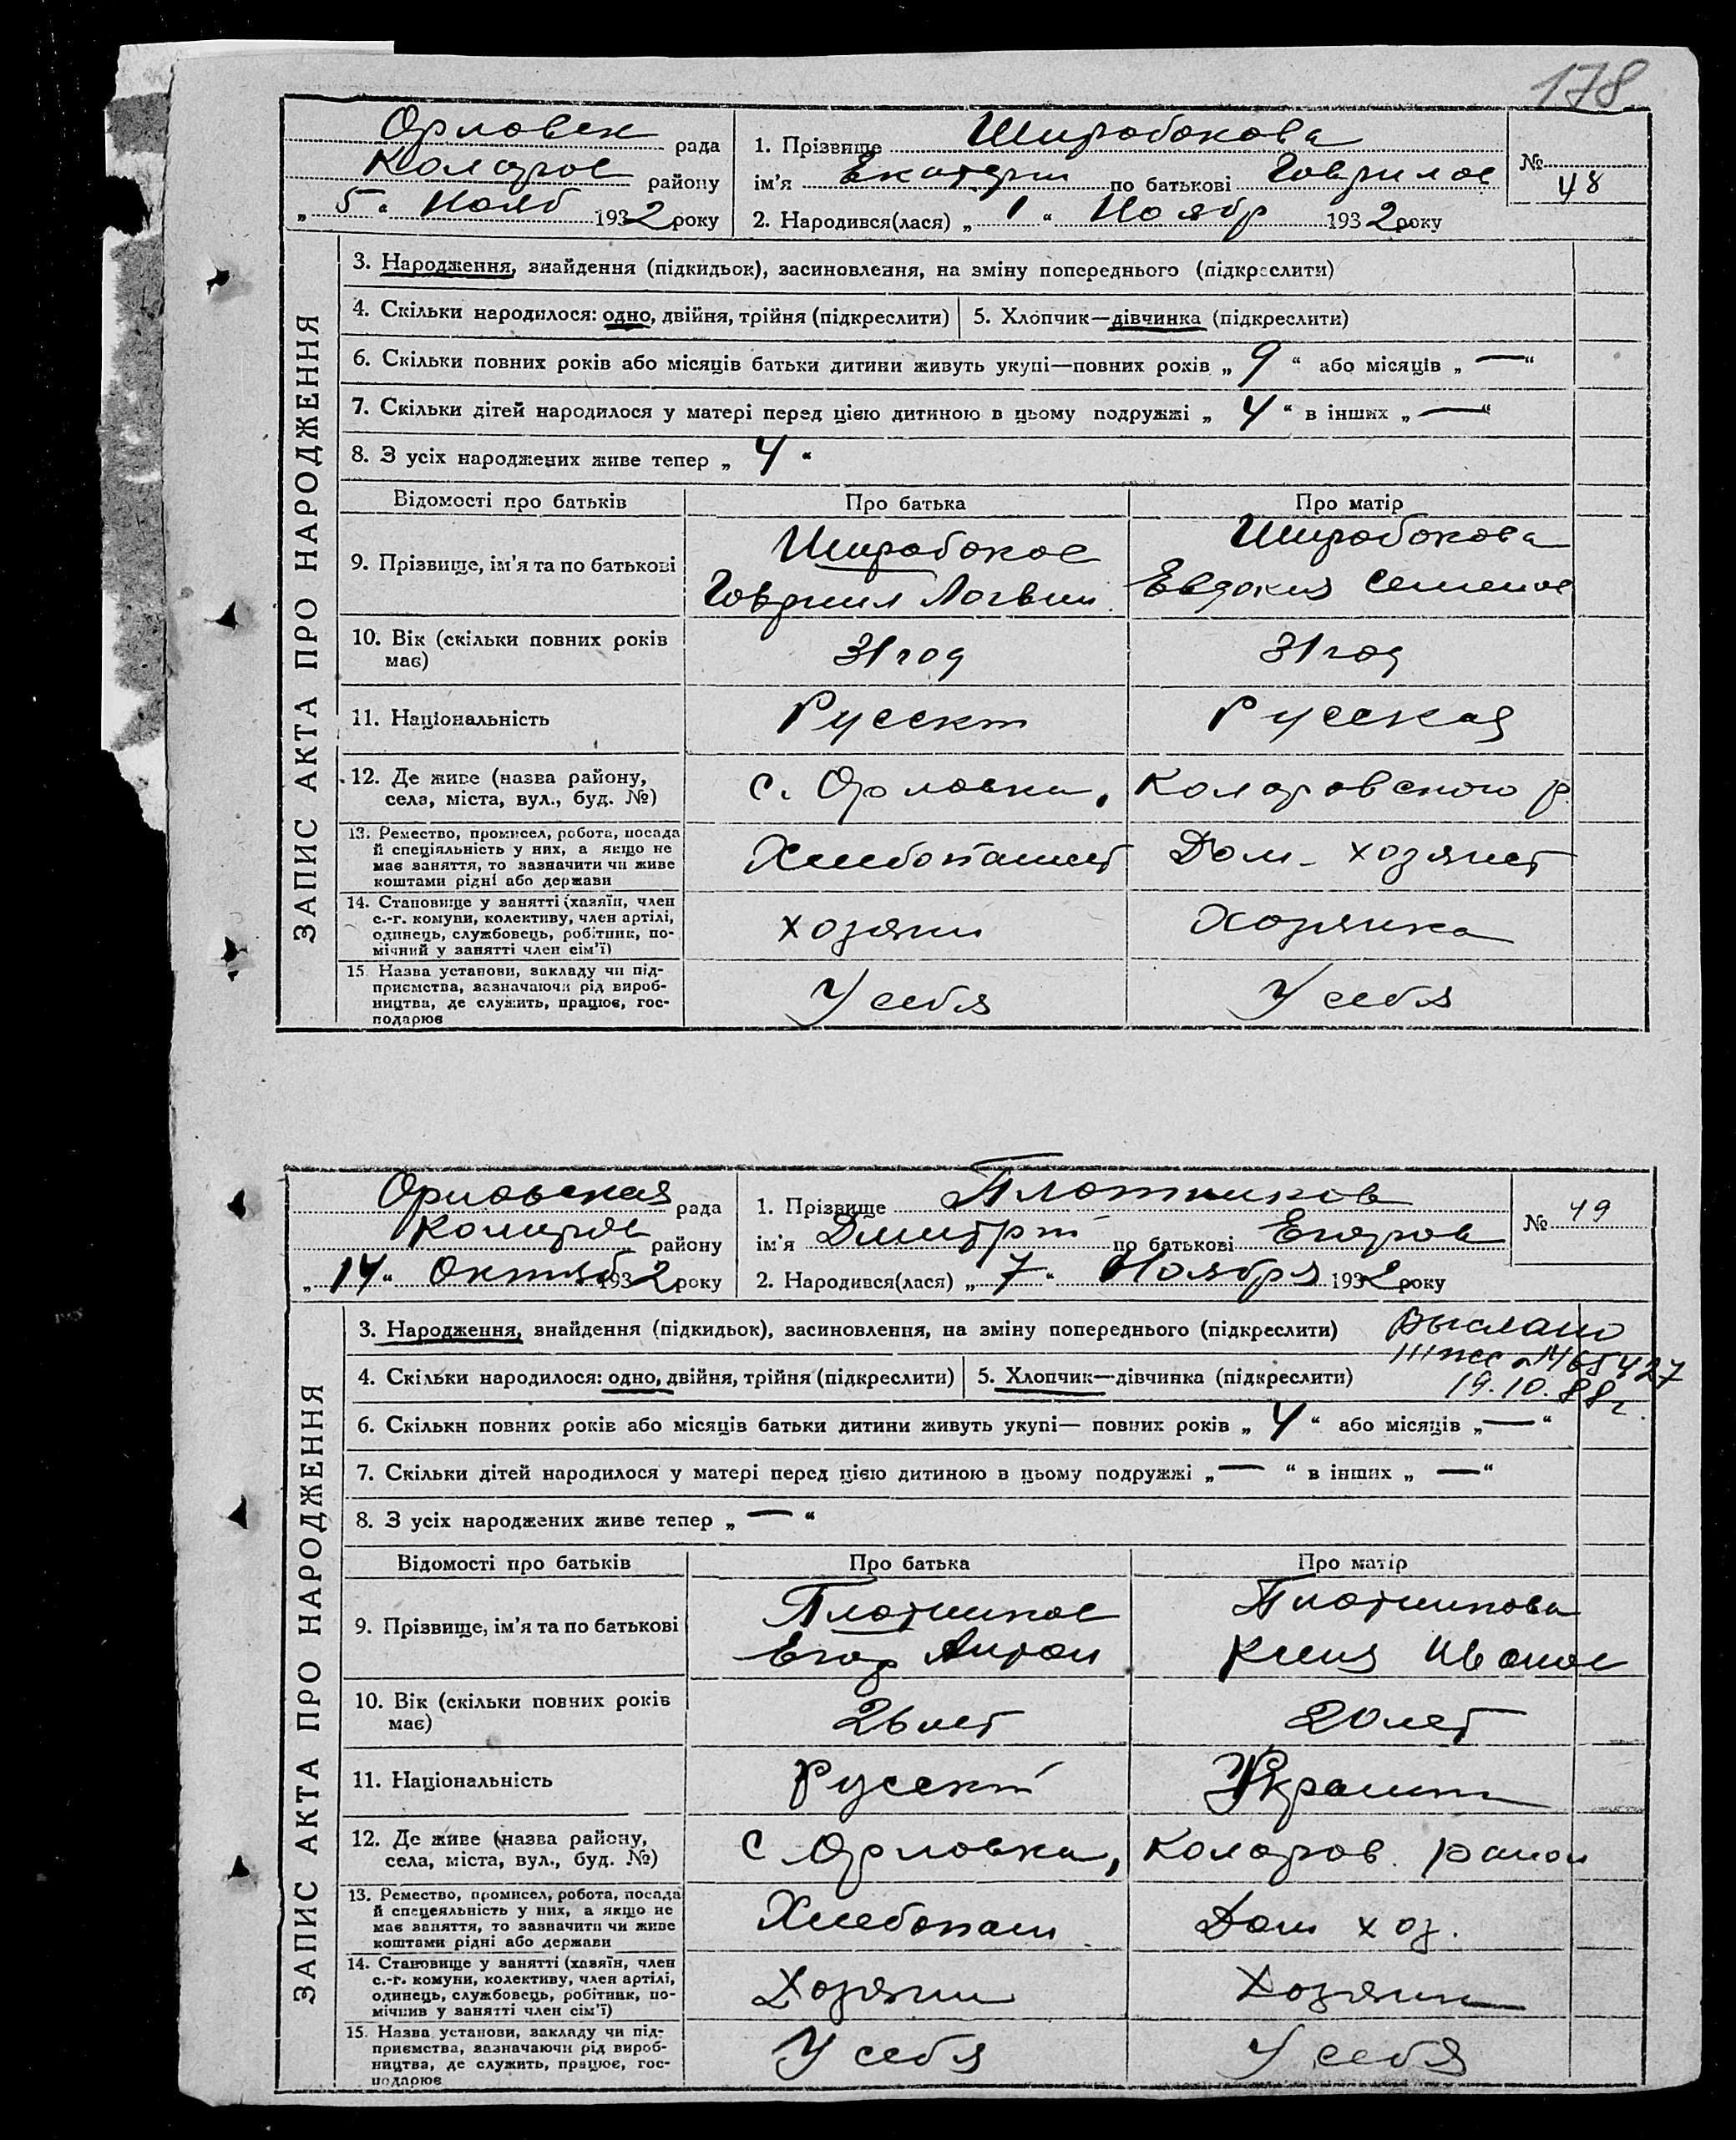 178
Орловск рада
Коларов району
„ 5 “ Нояб 1932 року
1. Прізвище Широбокова
ім'я Екатерин по батькові Гаврилов
2. Народився(лася) „ 1 “ Ноябр 1932 року
№ 48
ЗАПИС АКТА ПРО НАРОДЖЕННЯ
3. Народження, знайдення (підкидьок), засиновлення, на зміну попереднього (підкреслити)
4. Скільки народилося: одно, двійня, трійня (підкреслити) 5. Хлопчик—дівчинка (підкреслити)
6. Скільки повних років або місяців батьки дитини живуть укупі—повних років „ 9 “ або місяців „ — “
7. Скільки дітей народилося у матері перед цією дитиною в цьому подружжі „ 4 “ в інших „ — “
8. З усіх народжених живе тепер „ 4 “
Відомості про батьків Про батька Про матір
9. Прізвище, ім'я та по батькові
Широбоков
Гаврил Логвин
Широбокова
Евдокия Семенов
10. Вік (скільки повних років
має)
31 год 31 год
11. Національність Русский Русская
12. Де живе (назва району,
села, міста, вул., буд. №)
с. Орловка, Коларовского р.
13. Ремество, промисел, робота, посада
й спеціяльність у них, а якщо не
має заняття, то зазначити чи живе
коштами рідні або держави
Хлебопашест Дом-хозяйст
14. Становище у занятті (хазяїн, член
с.-г. комуни, колективу, член артілі,
одинець, службовець, робітник, по-
мічний у занятті член сім'ї)
хозяин Хозяйка
15. Назва установи, закладу чи під-
приємства, зазначаючи рід вироб-
ництва, де служить, працює, гос-
подарює
У себя У себя
Орловская рада
Коларов району
„ 14 “ Октяб 1932 року
1. Прізвище Плотников
ім'я Дмитрий по батькові Егоров
2. Народився(лася) „ 7 “ Ноября 1932 року
№ 49
ЗАПИС АКТА ПРО НАРОДЖЕННЯ
3. Народження, знайдення (підкидьок), засиновлення, на зміну попереднього (підкреслити)
Выслано
465427
19.10.88г.
4. Скільки народилося: одно, двійня, трійня (підкреслити) 5. Хлопчик—дівчинка (підкреслити)
6. Скільки повних років або місяців батьки дитини живуть укупі— повних років „ 4 “ або місяців „ — “
7. Скільки дітей народилося у матері перед цією дитиною в цьому подружжі „ — “ в інших „ — “
8. З усіх народжених живе тепер „ — “
Відомості про батьків Про батька Про матір
9. Прізвище, ім'я та по батькові
Плотников
Егор Антон
Плотникова
Иванов
10. Вік (скільки повних років
має)
26 лет 20 лет
11. Національність Русский Украин
12. Де живе (назва району,
села, міста, вул., буд. №)
с Орловка, Коларов. район
13. Ремество, промисел, робота, посада
й спецеяльність у них, а якщо не
має заняття, то зазначити чи живе
коштами рідні або держави
Хлебопаш Дом хоз.
14. Становище у занятті (хазяїн, член
с.-г. комуни, колективу, член артілі,
одинець, службовець, робітник, по-
мічнив у занятті член сім'ї)
Хозяин Хозяин
15. Назва установи, закладу чи під-
приємства, зазначаючи рід вироб-
ництва, де служить, працює, гос-
подарює
У себя У себя